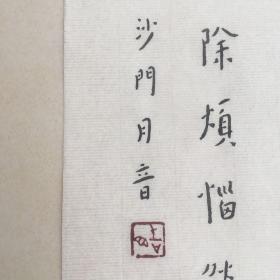 除煩惱
沙門月音